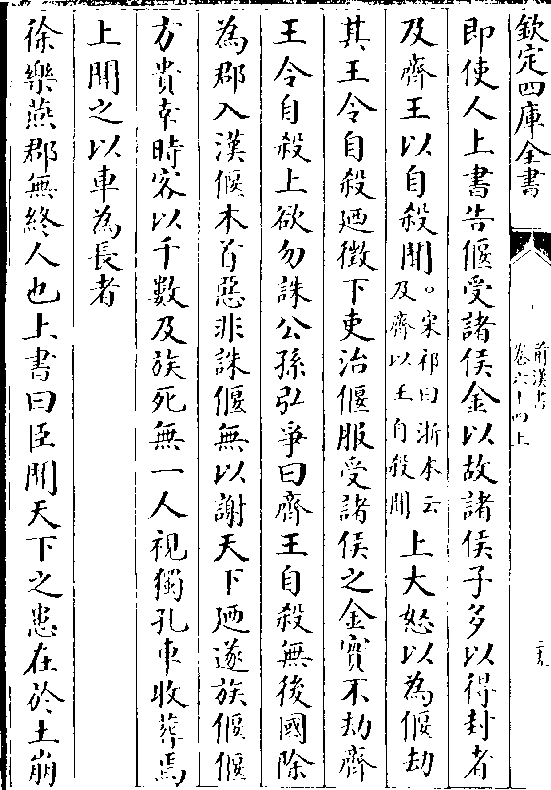 欽定四庫全書
前漢書
卷六十四上
即使人上書告偃受諸侯金以故諸侯子多以得封者
及齊王以自殺聞。宋祁曰浙本云及齊以王自殺聞上大怒以為偃劫
其王令自殺廼徵下吏治偃服受諸侯之金實不劫齊
王令自殺上欲勿誅公孫弘爭曰齊王自殺無後國除
為郡入漢偃本首惡非誅偃無以謝天下廼遂族偃偃
方貴幸時客以千數及族死無一人視獨孔車收葬焉
上聞之以車為長者
徐樂燕郡無終人也上書曰臣聞天下之患在於土崩